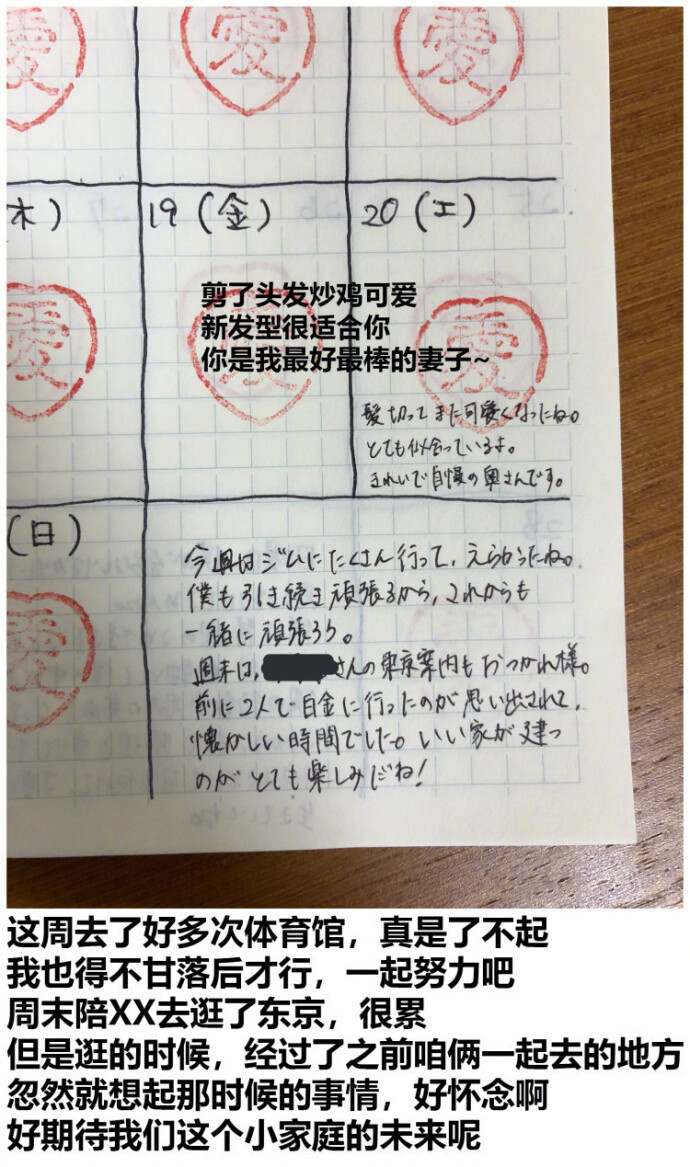 愛
愛
愛
木)
19(金)
20(土)
愛
愛
愛
剪了头发炒鸡可爱
新发型很适合你
你是我最好最棒的妻子~
髪切ってまた可愛くなったね。
とても似合っているよ。
きれいで自慢の奥さんです。
(日)
愛
今週はジムにたくさん行って、えらかったね。
僕も引き続き頑張るから、これからも
一緒に頑張ろう。
週末は、さんの東京案内もおつかれ様。
前に2人で白金に行ったのが思い出されて、
懐かしい時間でした。いい家が建つ
のがとても楽しみだね!
这周去了好多次体育馆，真是了不起
我也得不甘落后才行，一起努力吧
周末陪XX去逛了东京，很累
但是逛的时候，经过了之前咱俩一起去的地方
忽然就想起那时候的事情，好怀念啊
好期待我们这个小家庭的未来呢